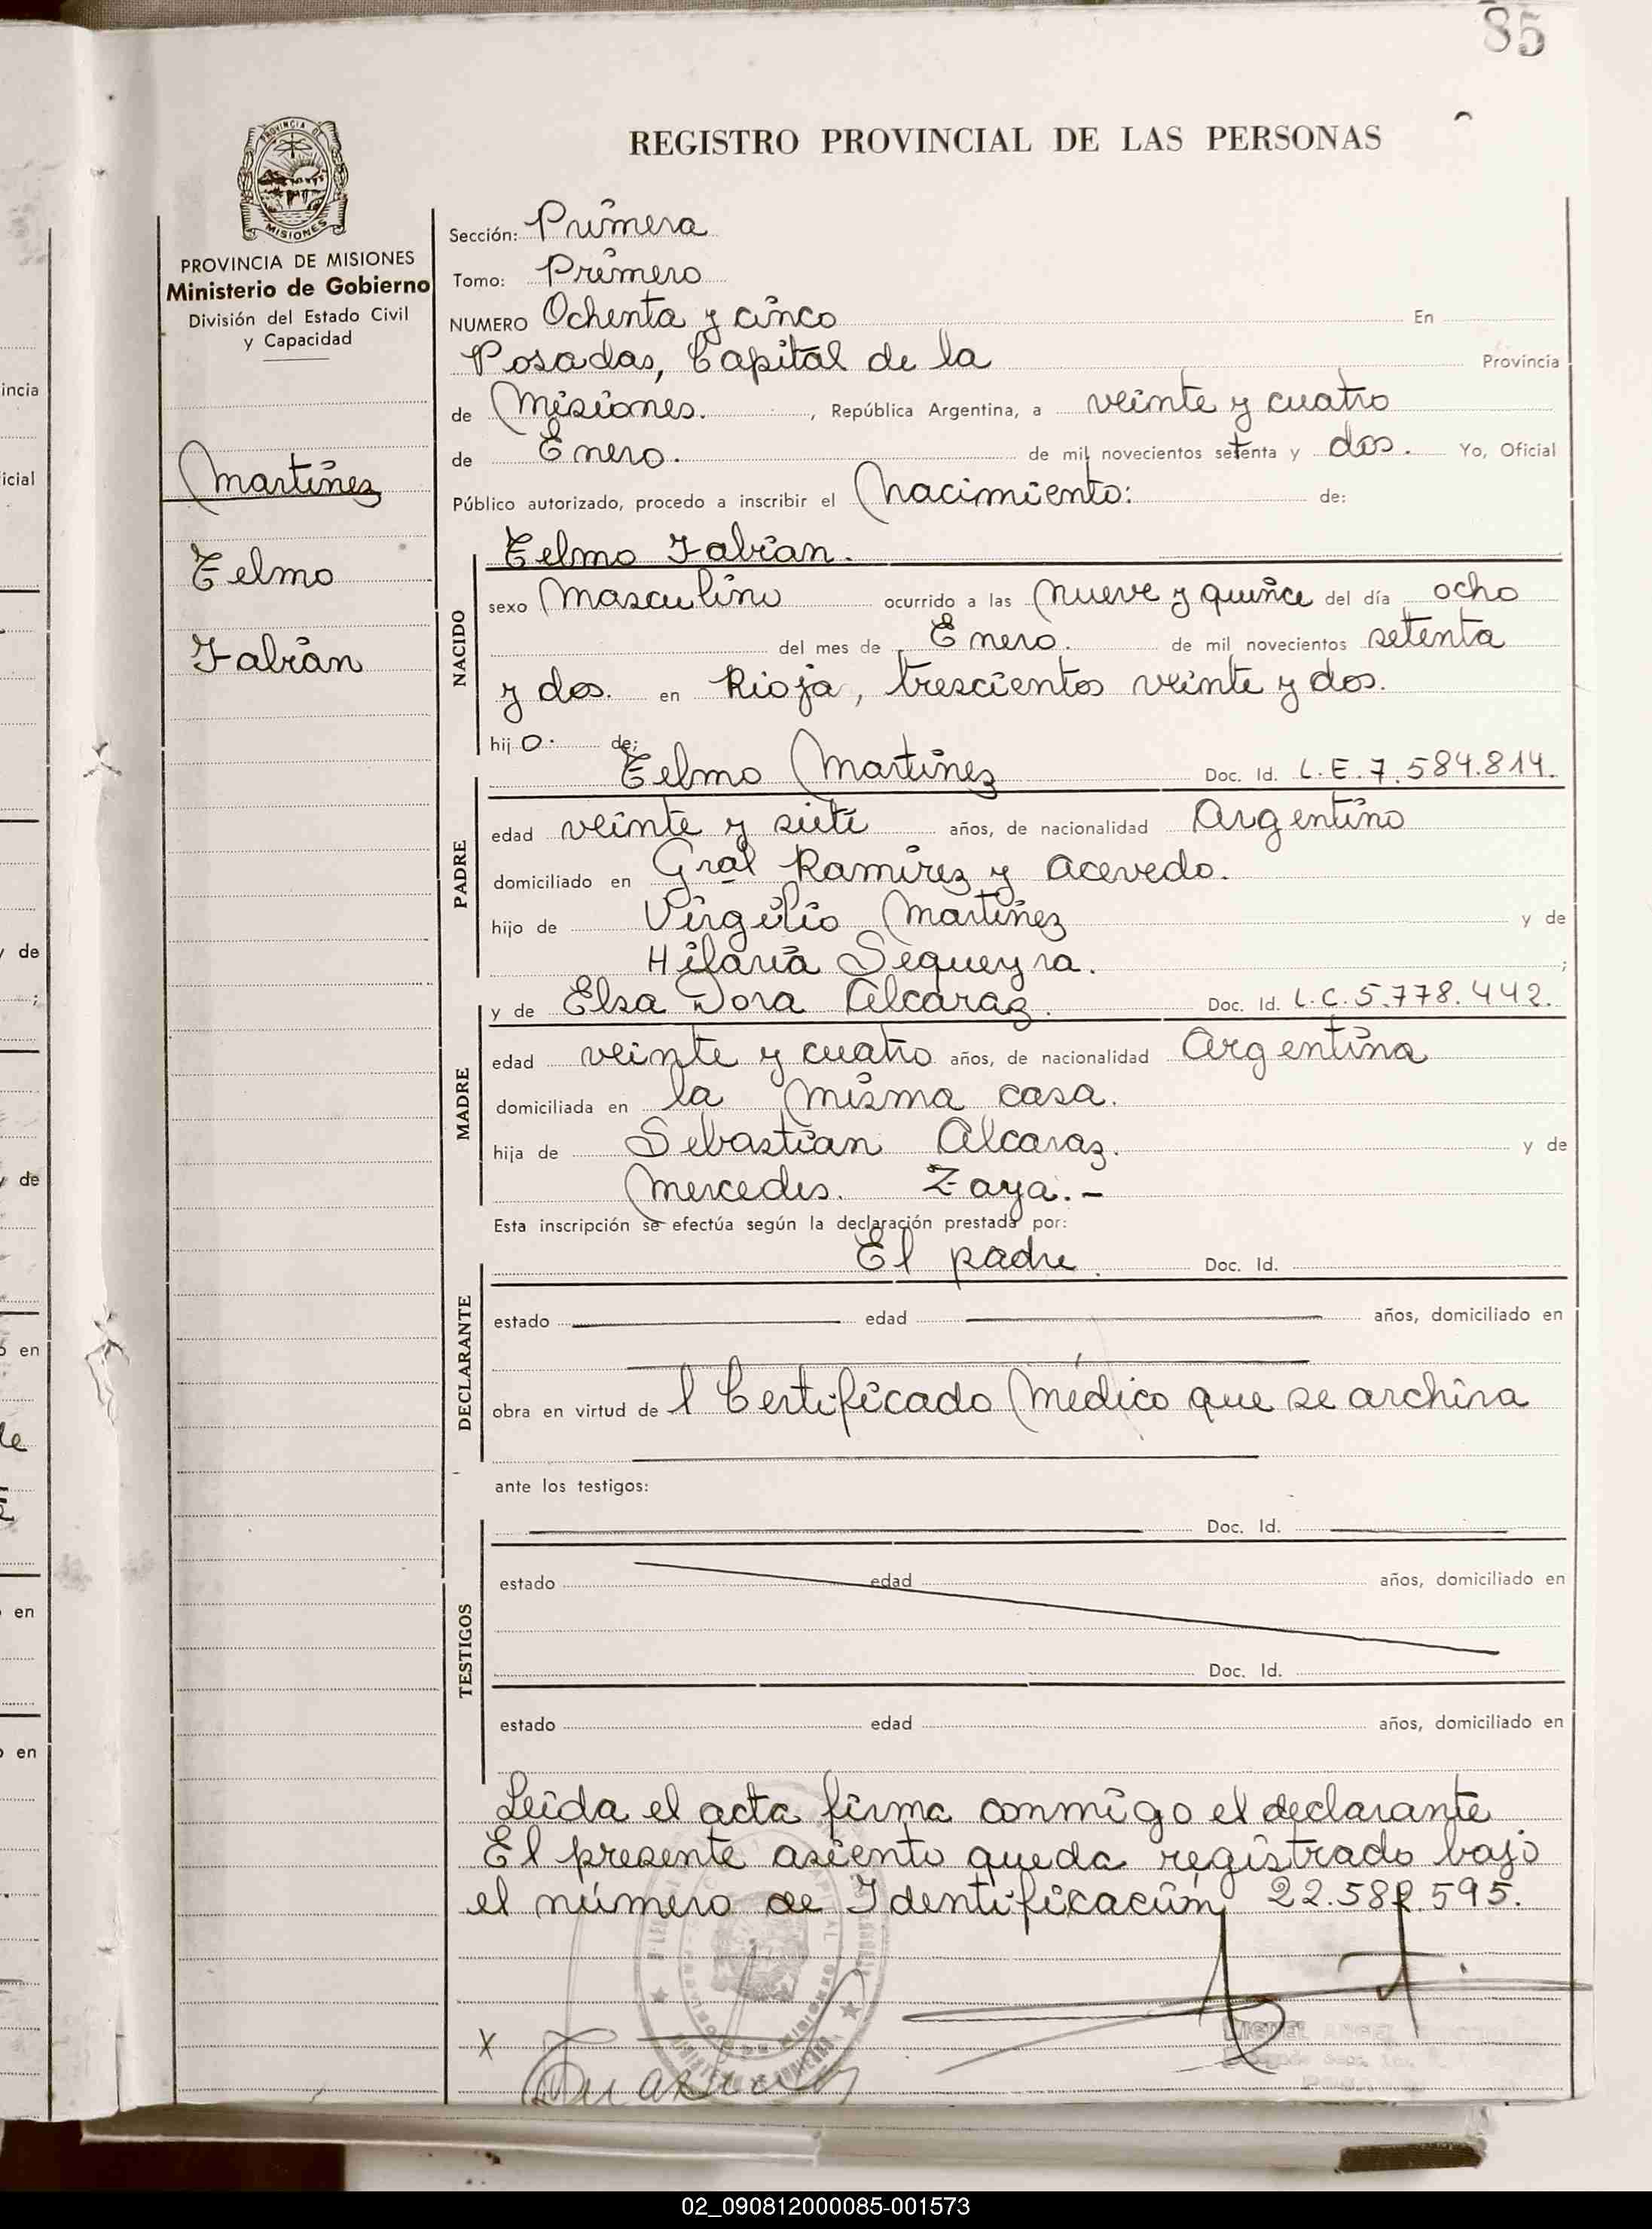 85
REGISTRO PROVINCIAL DE LAS PERSONAS
PROVINCIA DE
MISIONES
PROVINCIA DE MISIONES
Ministerio de Gobierno
División del Estado Civil
y Capacidad
Martínez
Telmo
Fabián
Sección: Primera
Tomo: Primero
NUMERO Ochenta y cinco En
Posadas, Capital de la Provincia
de Misiones. , República Argentina, a veinte y cuatro
de Enero. de mil novecientos setenta y dos. Yo, Oficial
Público autorizado, procedo a inscribir el nacimiento: de:
Telmo Fabian.
NACIDO
sexo masculino ocurrido a las nueve y quince del día ocho
del mes de Enero. de mil novecientos setenta
y dos. en Rioja, trescientos veinte y dos.
hijo. de:
PADRE
Telmo Martínez Doc. Id. L.E.7.584.814.
edad veinte y siete años, de nacionalidad Argentino
domiciliado en Gral Ramírez y Acevedo.
hijo de Virgilio Martínez y de
Hilaria Sequeyra. ;
MADRE
y de Elsa Dora Alcaraz. Doc. Id. L.C.5.778.442.
edad veinte y cuatro años, de nacionalidad Argentina
domiciliada en la misma casa.
hija de Sebastian Alcaraz. y de
Mercedes. Zaya.-
Esta inscripción se efectúa según la declaración prestada por:
DECLARANTE
El padre. Doc. Id.
estado edad años, domiciliado en
obra en virtud de l Certificado Médico que se archiva
ante los testigos:
TESTIGOS
Doc. Id.
estado edad años, domiciliado en
Doc. Id.
estado edad años, domiciliado en
Leída el acta firma conmigo el declarante
El presente asiento queda registrado bajo
el número de Identificación 22.582.595.
X
MIGUEL ANGEL
02_090812000085-001573